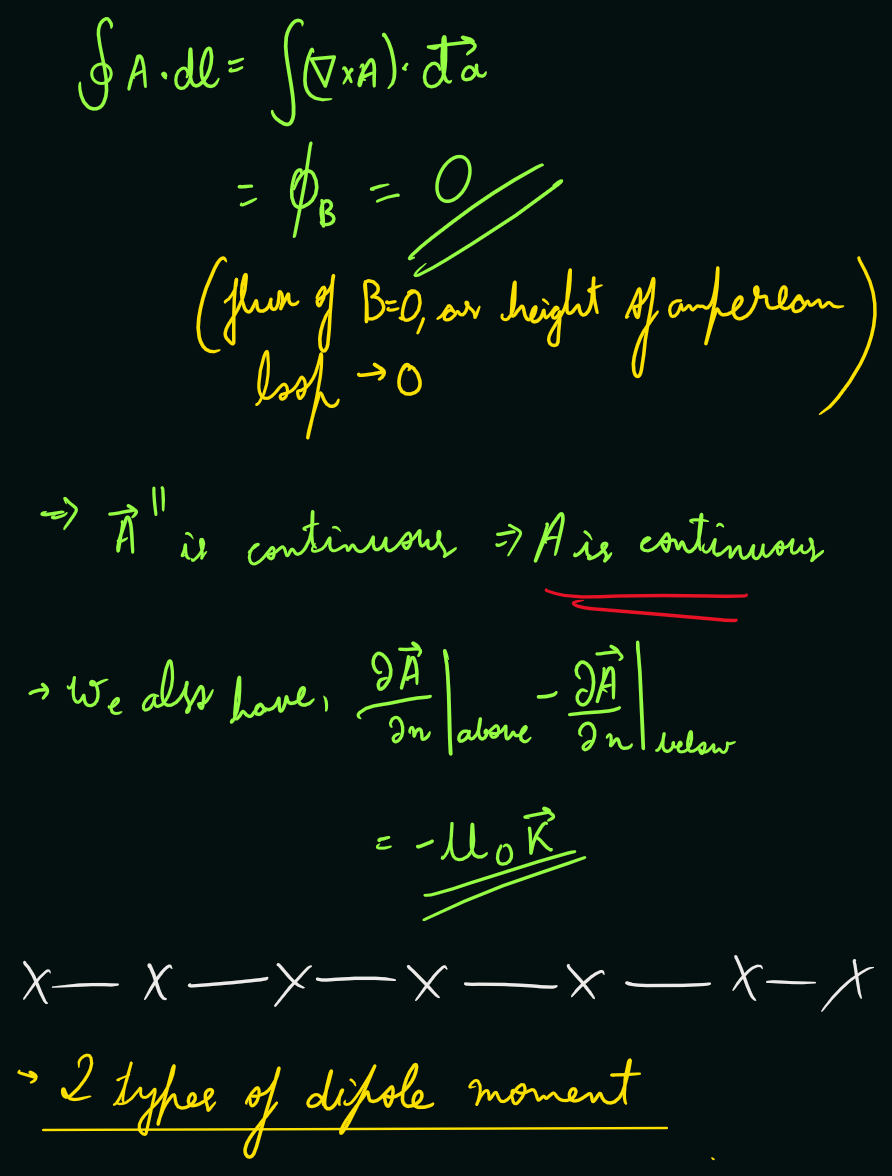 ∮ A·dl = ∫(∇×A)·d⃗a
= ϕ_B = 0
(flux of B=0, as height of amperean
loop → 0
⇒ A⃗^∥ is continuous ⇒ A is continuous
→ We also have, ∂A⃗/∂n|above − ∂A⃗/∂n|below
= −μ₀K⃗
X — X — X — X — X — X — X
→ 2 types of dipole moment